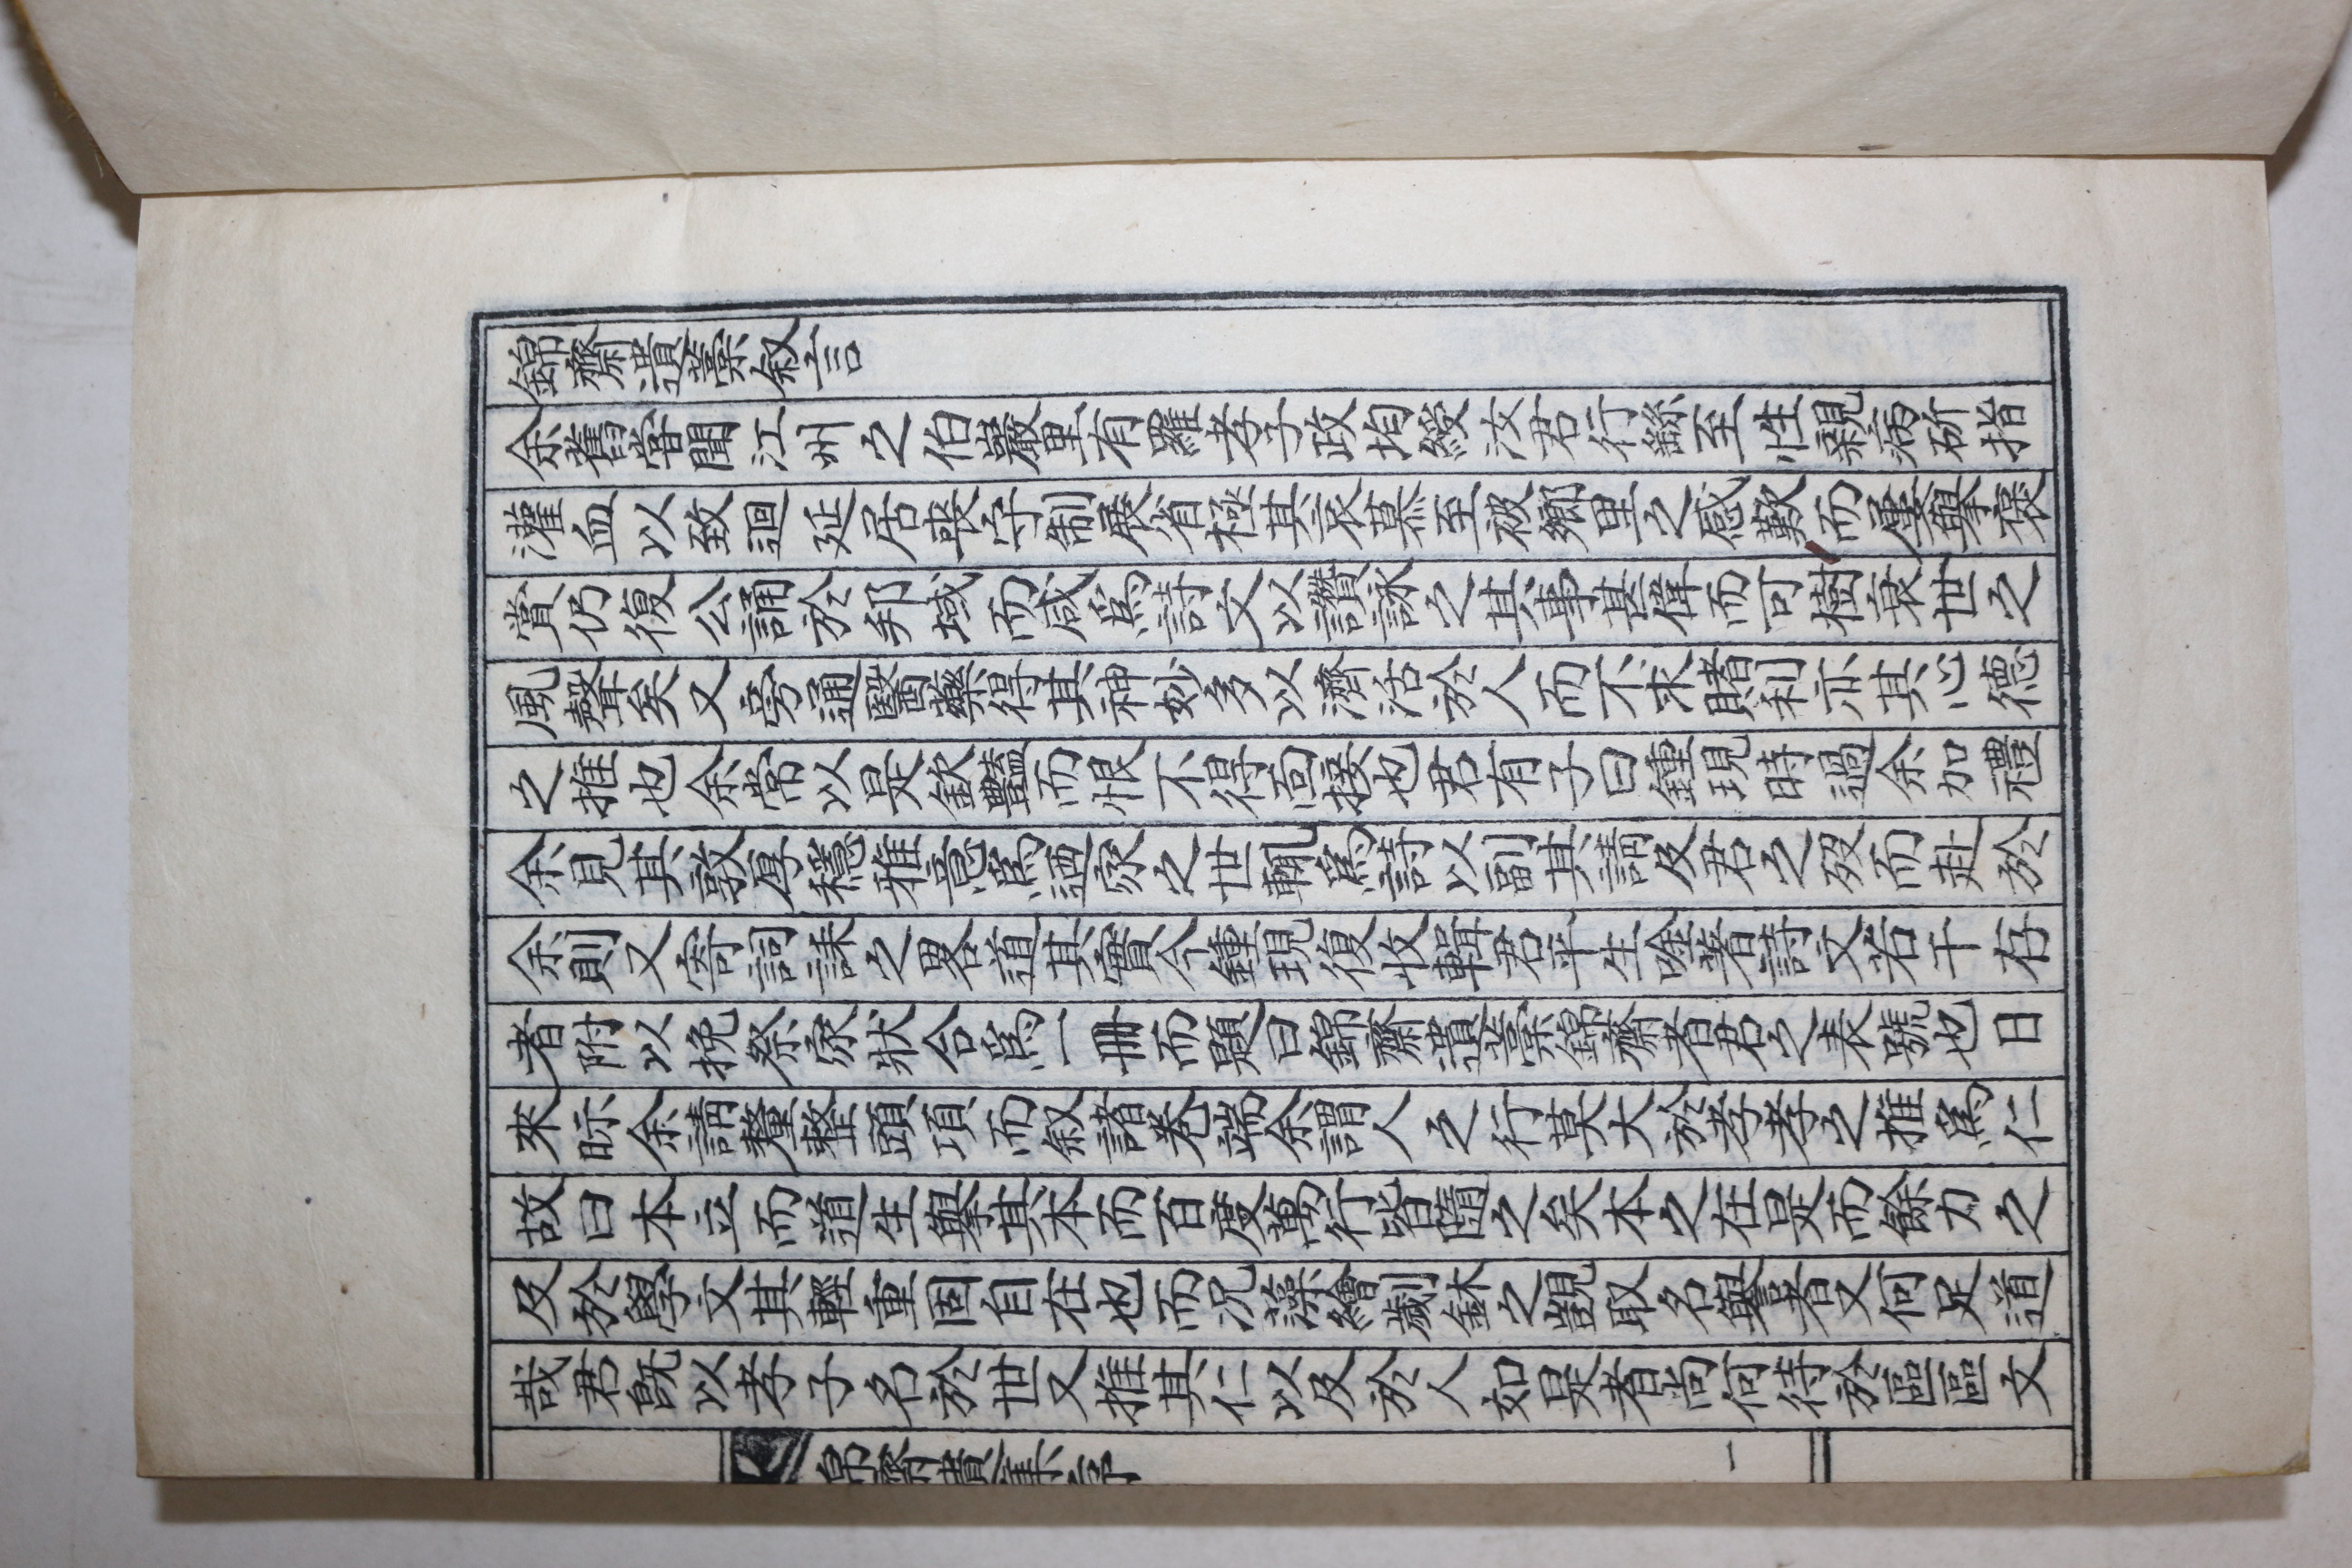 錦齋遺藁叙言
余舊甞聞江州之伯巖里有羅孝子政均綬汝君行絲至性親病斫指
灌血以致迴延居喪守制展省極其哀慕至被鄉里之感歎而屢擧褒
賞仍復公誦於邦域而咸爲詩文以讚詠之其事甚偉而可樹衰世之
風聲矣又旁通醫藥得其神妙多以濟活於人而不求賭利亦其心德
之推也余常以是欽豔而恨不得面接也君有子曰鍾現時過余加禮
余見其敦厚穩雅意爲迺家之世輒爲詩以副其請及君之歿而赴於
余則又寄詞誄之畧道其實今鍾現復收輯君平生唫著詩文若干存
者附以挽祭家狀合爲一冊而題曰錦齋遺藁錦齋者君之表號也日
來眎余請釐整頭項而叙諸卷端余謂人之行莫大於孝孝之推爲仁
故曰本立而道生擧其本而百度萬行皆隨之矣本之在是而餘力之
及於學文其輕重固自在也而况藻繪劌鉥之覬取名譽者又何足道
哉君旣以孝子名於世又推其仁以及於人如是者尚何待於區區文
錦齋遺集序
一